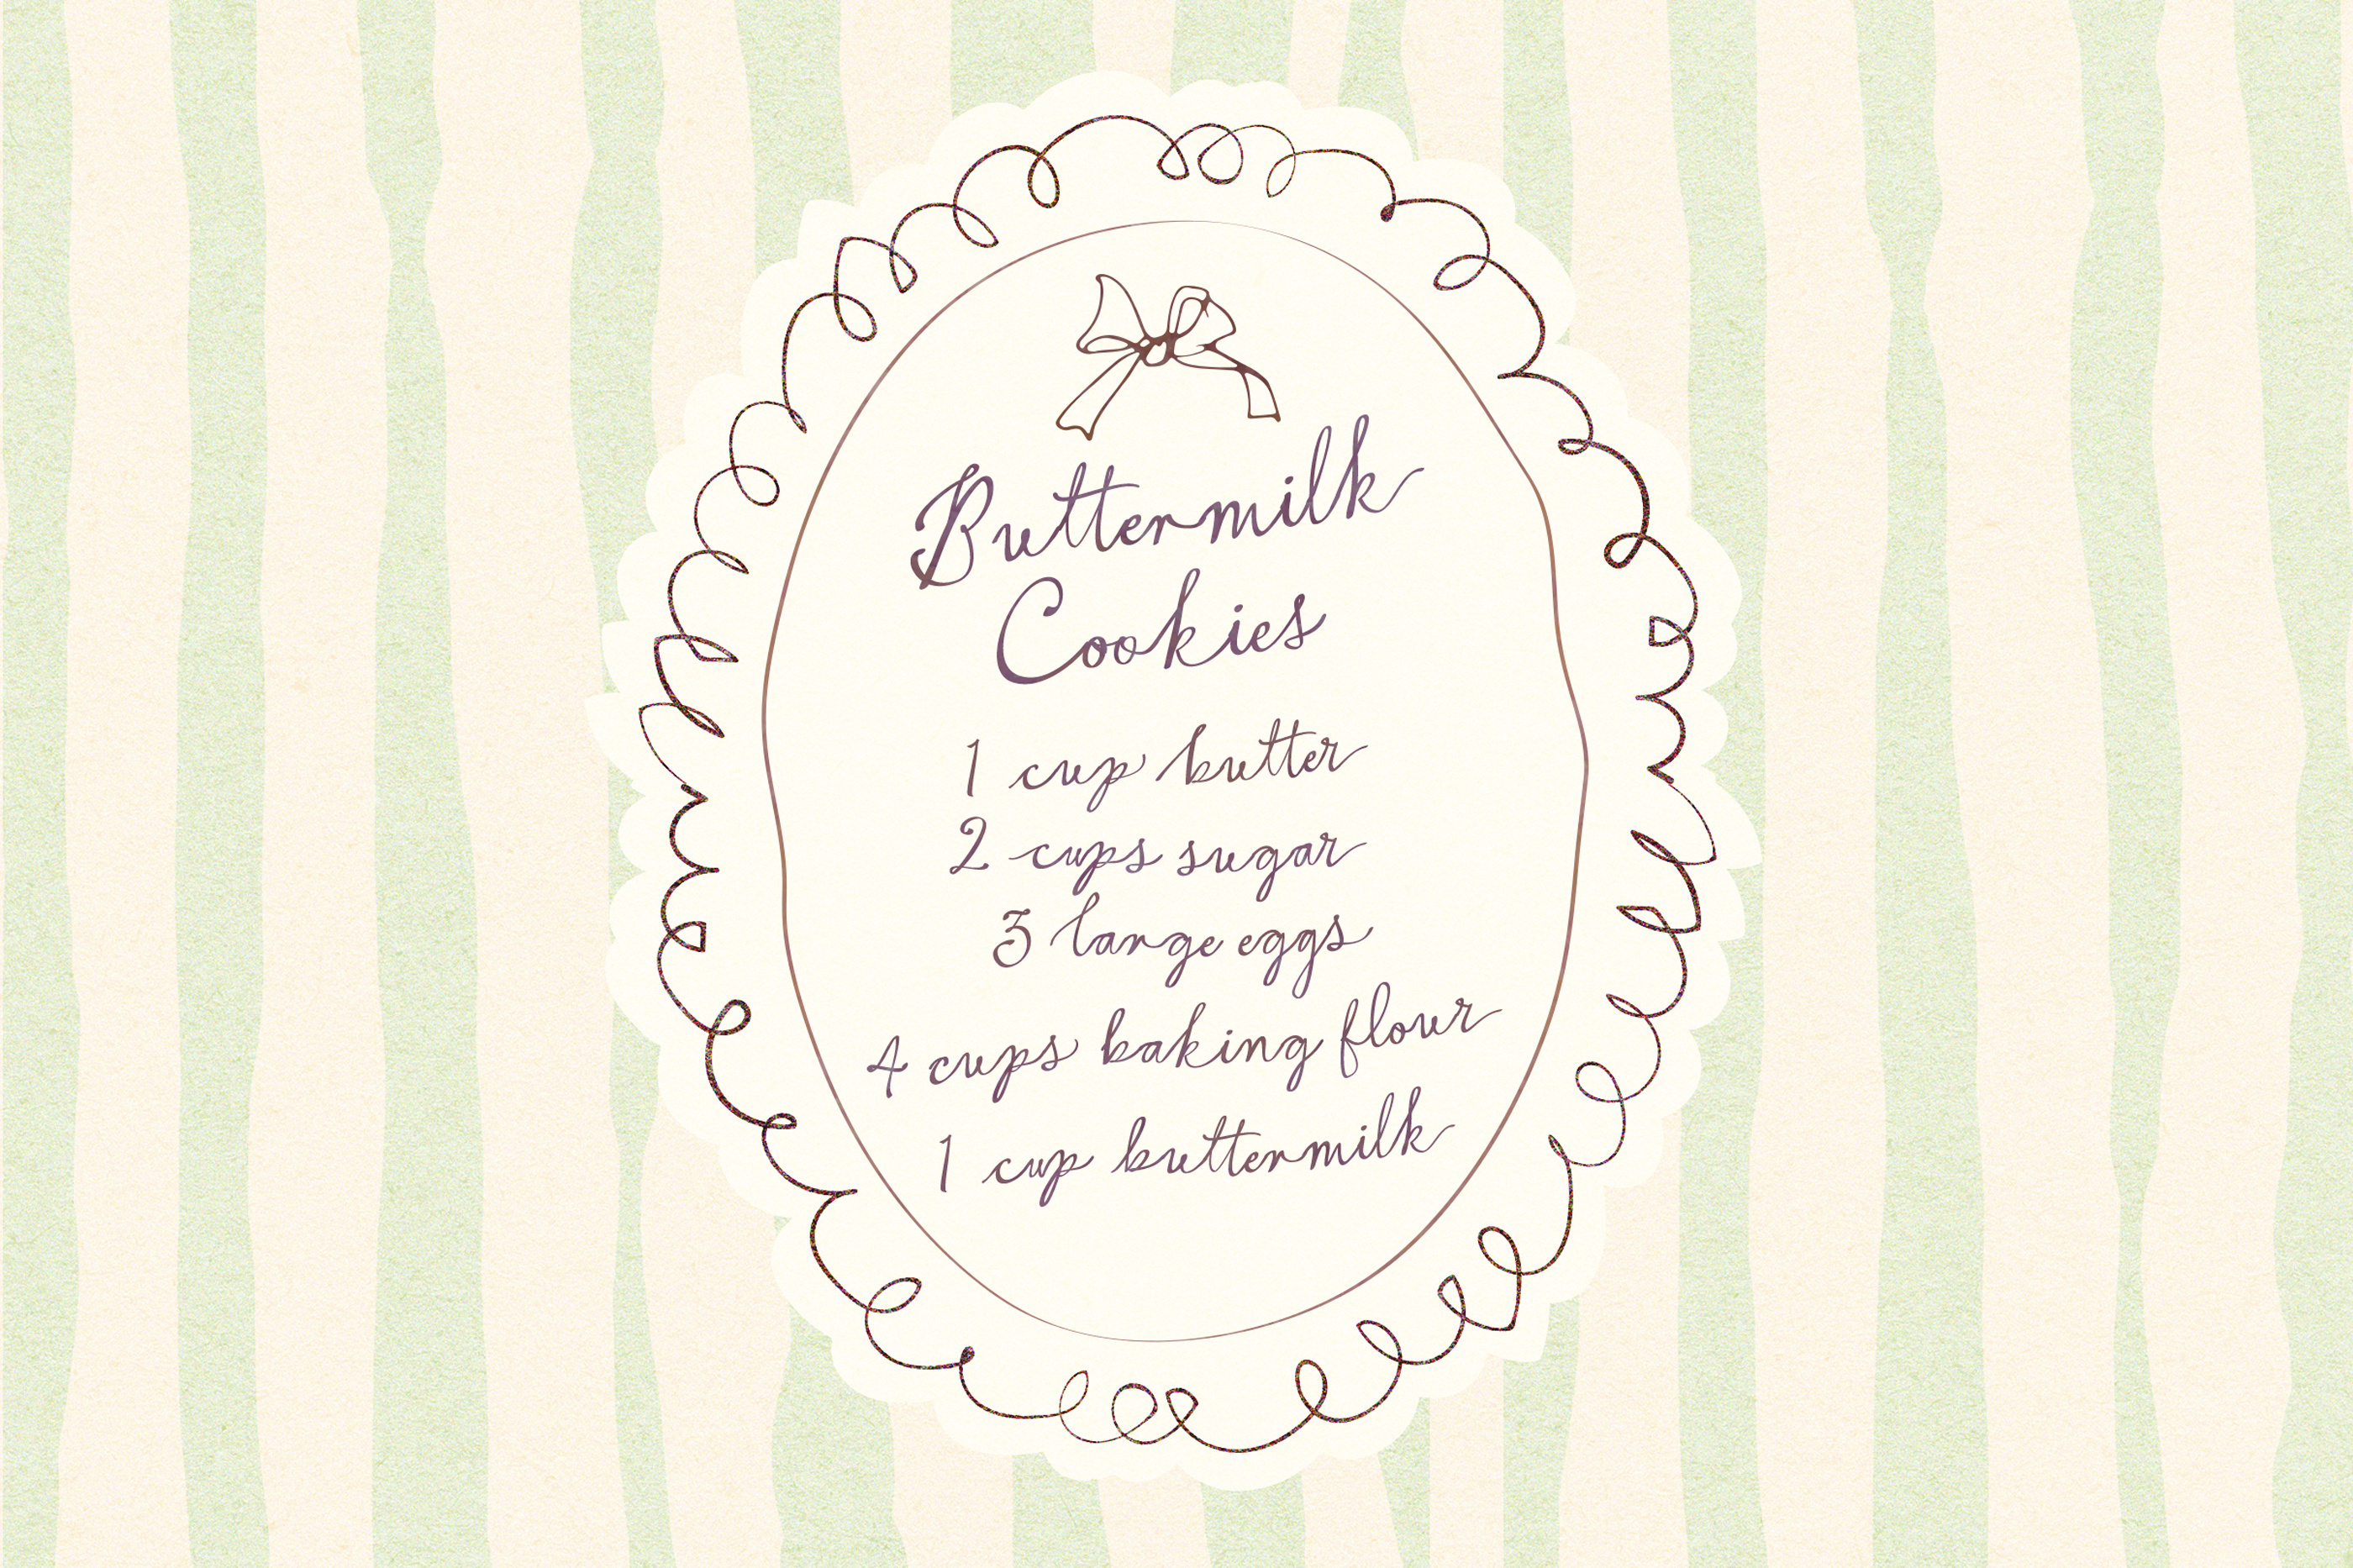 Buttermilk
Cookies
1 cup butter
2 cups sugar
3 large eggs
4 cups baking flour
1 cup buttermilk